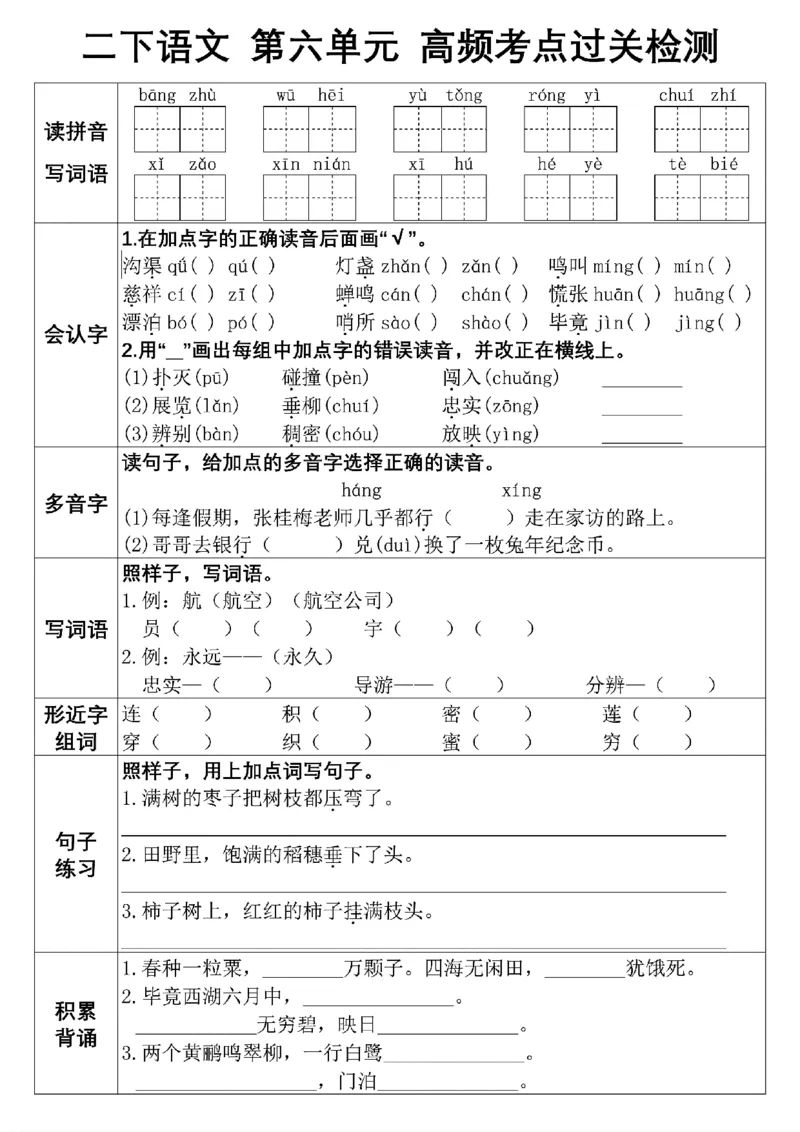 二下语文 第六单元 高频考点过关检测
读拼音
写词语
bāng zhù wū hēi yù tǒng róng yì chuí zhí
xǐ zǎo xīn nián xī hú hé yè tè bié
会认字
1.在加点字的正确读音后面画“√”。
沟渠 qǘ( ) qú( ) 灯盏 zhǎn( ) zǎn( ) 鸣叫 míng( ) mín( )
慈祥 cí( ) zī( ) 蝉鸣 cán( ) chán( ) 慌张 huān( ) huāng( )
漂泊 bó( ) pó( ) 哨所 sào( ) shào( ) 毕竟 jìn( ) jìng( )
2.用“__”画出每组中加点字的错误读音，并改正在横线上。
(1)扑灭(pū) 碰撞(pèn) 闯入(chuǎng) ________
(2)展览(lǎn) 垂柳(chuí) 忠实(zōng) ________
(3)辨别(bàn) 稠密(chóu) 放映(yìng) ________
多音字
读句子，给加点的多音字选择正确的读音。
háng xíng
(1)每逢假期，张桂梅老师几乎都行（ ）走在家访的路上。
(2)哥哥去银行（ ）兑(duì)换了一枚兔年纪念币。
写词语
照样子，写词语。
1.例：航（航空）（航空公司）
员（ ）（ ） 宇（ ）（ ）
2.例：永远——（永久）
忠实—（ ） 导游——（ ） 分辨—（ ）
形近字
组词
连（ ） 积（ ） 密（ ） 莲（ ）
穿（ ） 织（ ） 蜜（ ） 穷（ ）
句子
练习
照样子，用上加点词写句子。
1.满树的枣子把树枝都压弯了。
2.田野里，饱满的稻穗垂下了头。
3.柿子树上，红红的柿子挂满枝头。
积累
背诵
1.春种一粒粟，________万颗子。四海无闲田，________犹饿死。
2.毕竟西湖六月中，_______________。
____________无穷碧，映日______________。
3.两个黄鹂鸣翠柳，一行白鹭______________。
__________________，门泊______________。